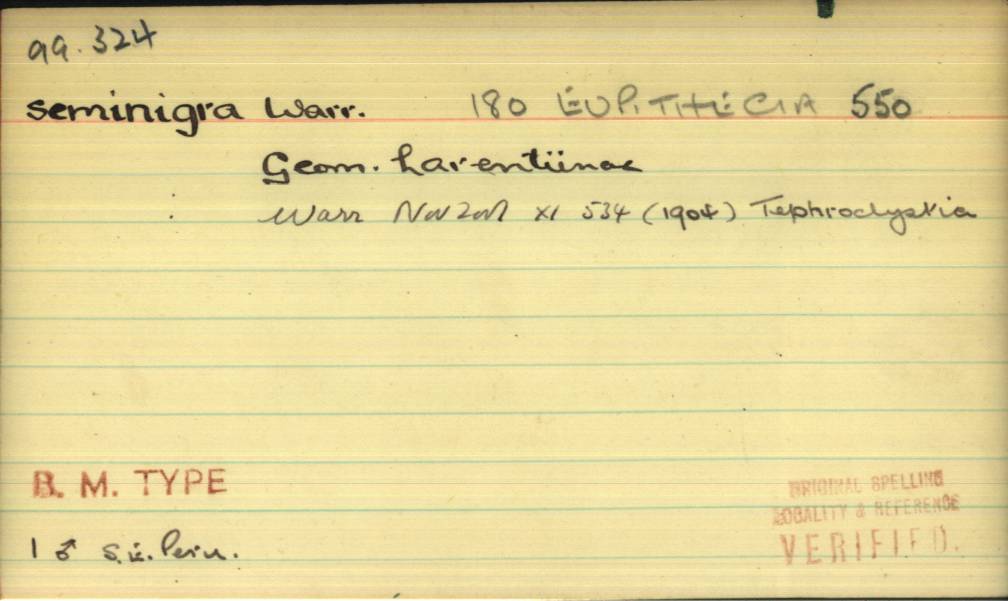 99.324
seminigra Warr. 180 EUPITHECIA 550
Geom. Larentiinae
Warr Nov Zool XI 534 (1904) Tephroclystia
B. M. TYPE
ORIGINAL SPELLING
LOCALITY & REFERENCE
VERIFIED.
1 ♂ S.E. Peru.